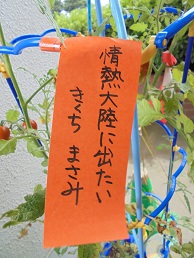 情熱大陸に出たい
きくち まさみ